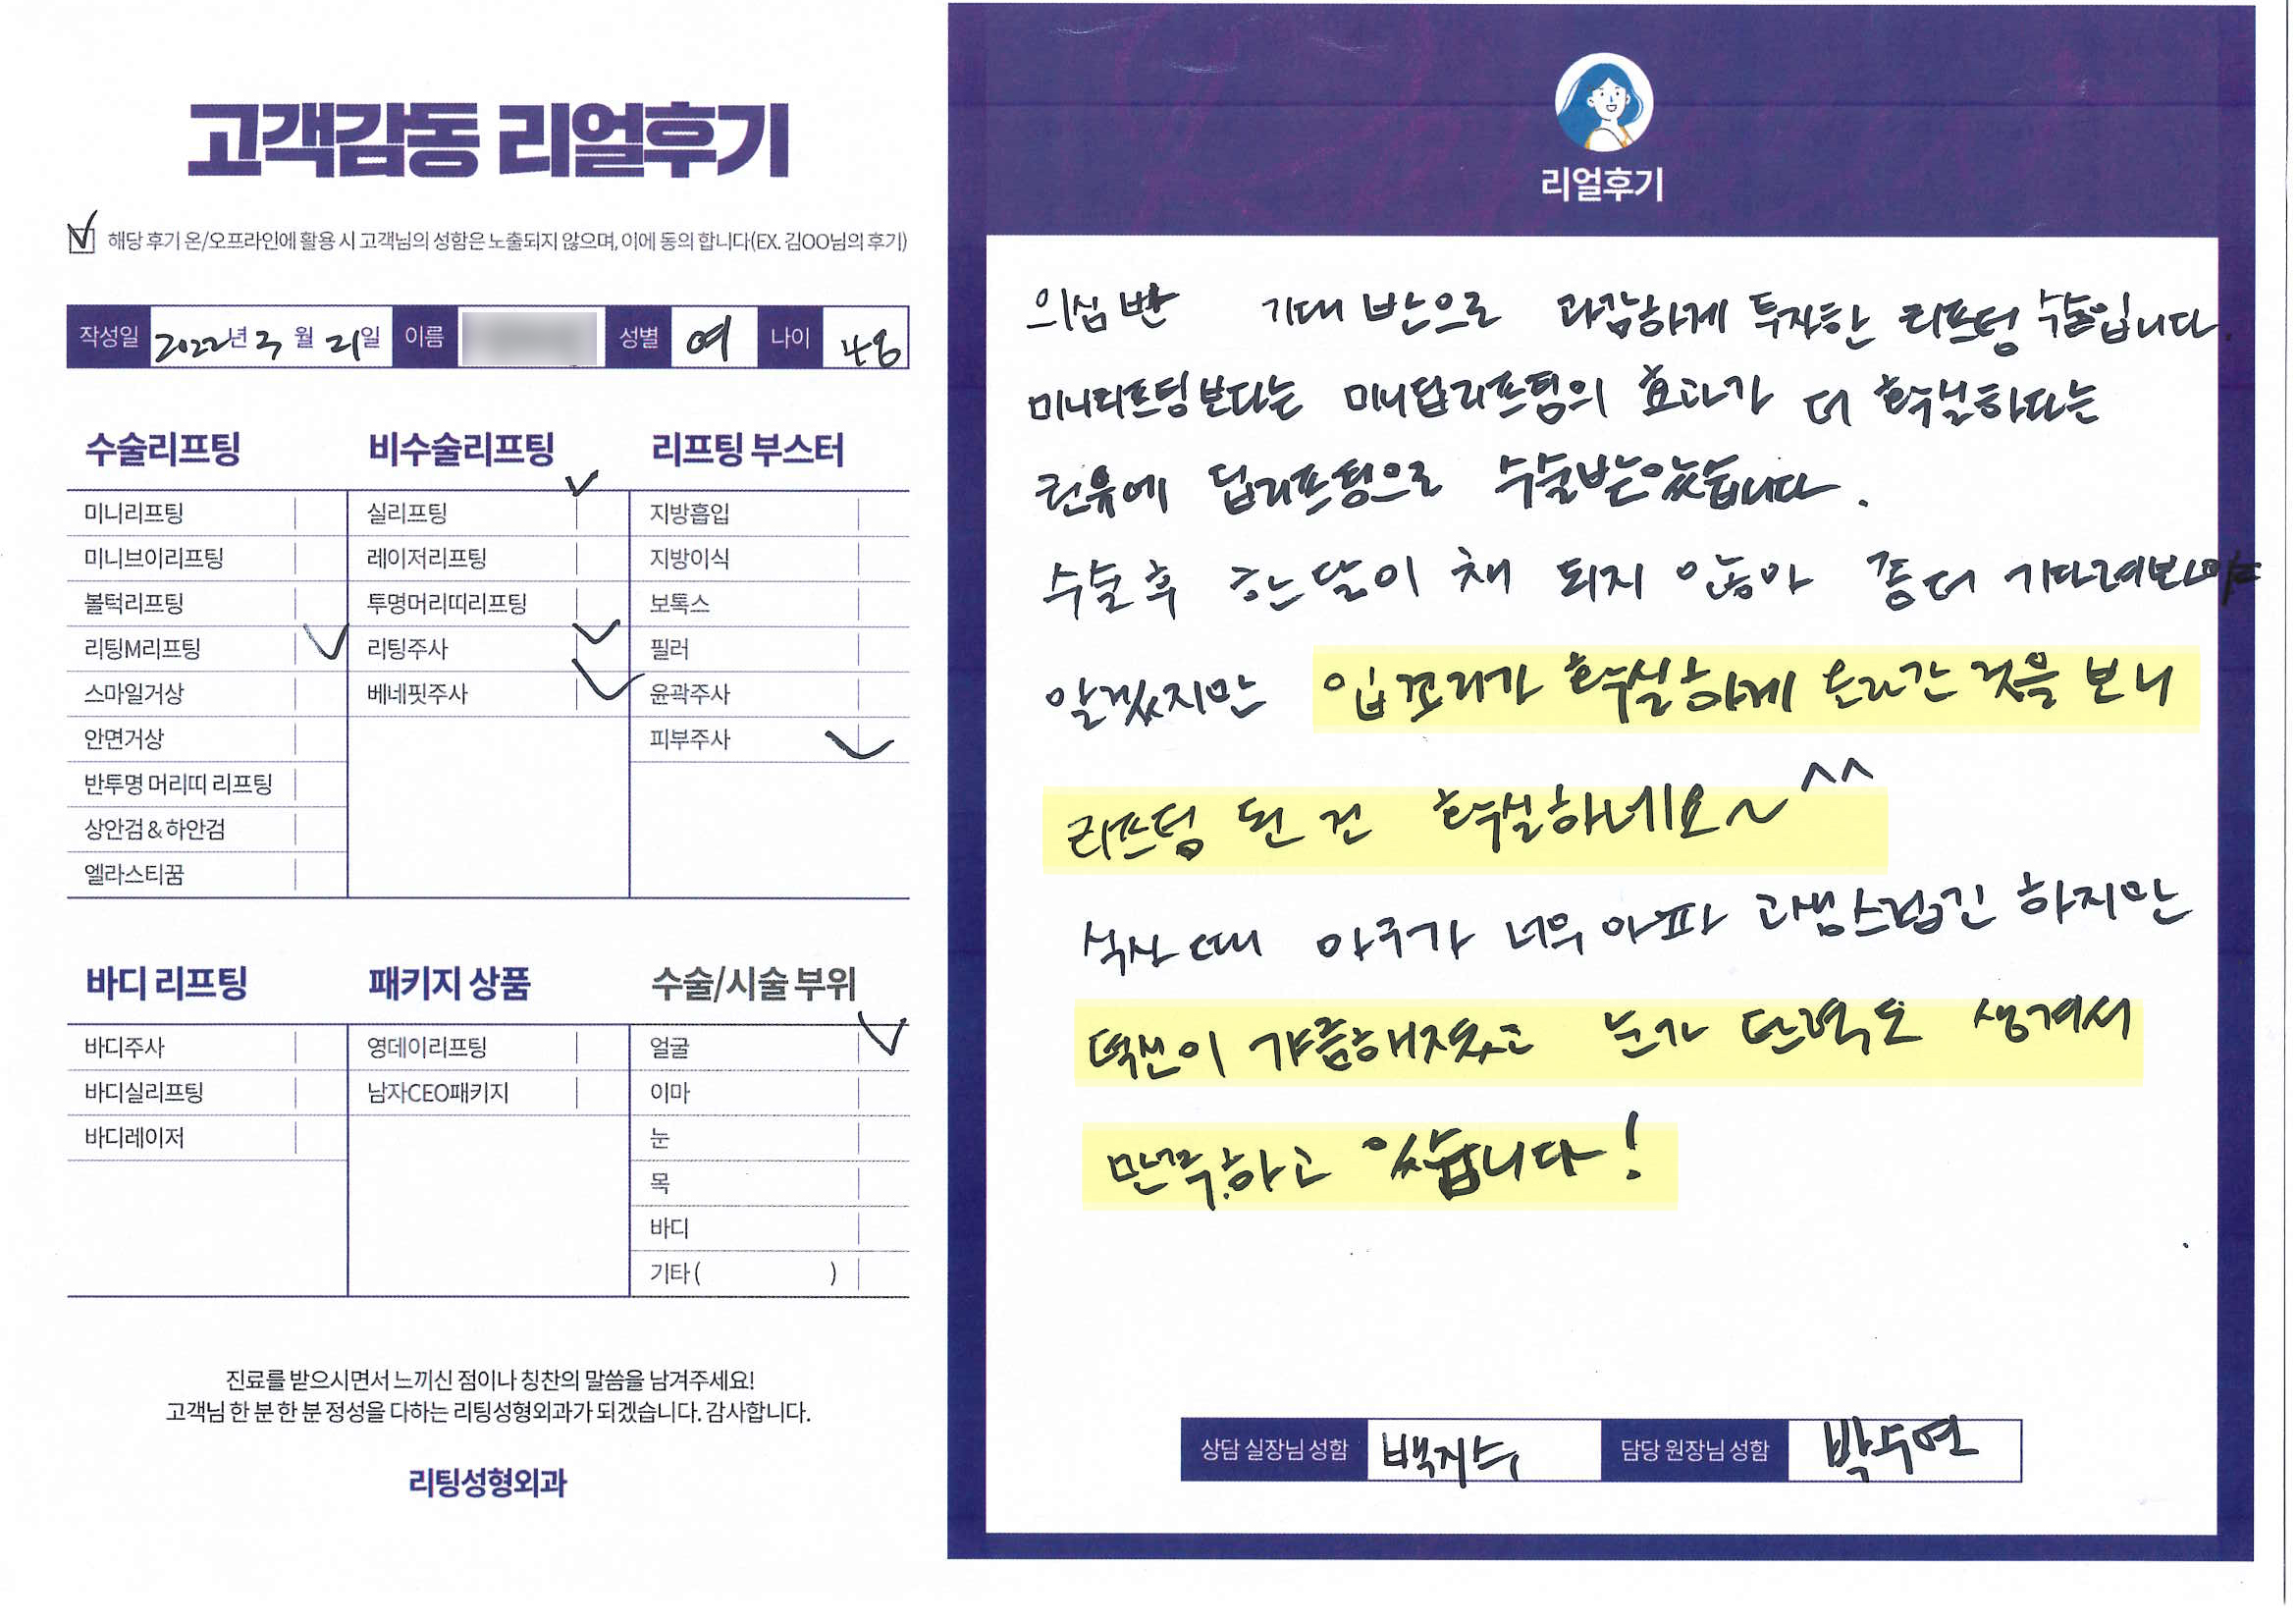 고객감동 리얼후기
해당 후기 온/오프라인에 활용 시 고객님의 성함은 노출되지 않으며, 이에 동의 합니다(EX. 김OO님의 후기)
작성일 2022년 3월 21일 이름 성별 여 나이 48
수술리프팅
미니리프팅
미니브이리프팅
볼턱리프팅
리팅M리프팅
스마일거상
안면거상
반투명 머리띠 리프팅
상안검 & 하안검
엘라스티꿈
비수술리프팅
실리프팅
레이저리프팅
투명머리띠리프팅
리팅주사
베네핏주사
리프팅 부스터
지방흡입
지방이식
보톡스
필러
윤곽주사
피부주사
바디 리프팅
바디주사
바디실리프팅
바디레이저
패키지 상품
영데이리프팅
남자CEO패키지
수술/시술 부위
얼굴
이마
눈
목
바디
기타 ( )
진료를 받으시면서 느끼신 점이나 칭찬의 말씀을 남겨주세요!
고객님 한 분 한 분 정성을 다하는 리팅성형외과가 되겠습니다. 감사합니다.
리팅성형외과
리얼후기
의심 반 기대 반으로 과감하게 투자한 리프팅 수술입니다.
미니리프팅보다는 미니딥리프팅의 효과가 더 확실하다는
권유에 딥리프팅으로 수술받았습니다.
수술 후 한 달이 채 되지 않아 좀 더 기다려봐야
알겠지만 입꼬리가 확실하게 올라간 것을 보니
리프팅 된 건 확실하네요~^^
식사 때 아구가 너무 아파 고생스럽긴 하지만
턱선이 갸름해지고 눈가 탄력도 생겨서
만족하고 있습니다!
상담 실장님 성함 백지수 담당 원장님 성함 박수연